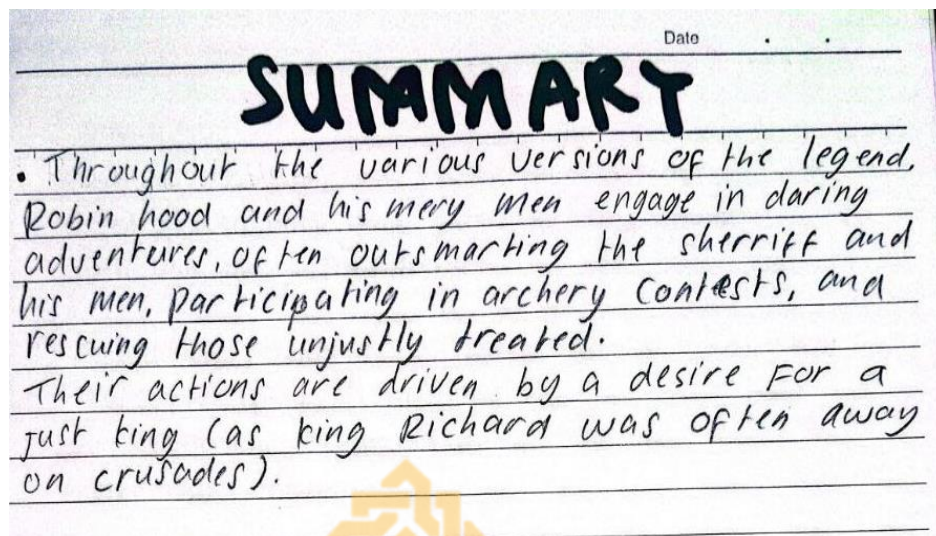 Date . .
SUMMARY
• Throughout the various versions of the legend,
Robin hood and his mery men engage in daring
adventures, often outsmarting the sherriff and
his men, participating in archery contests, and
rescuing those unjustly treated.
Their actions are driven by a desire For a
just king (as king Richard was often away
on crusades).